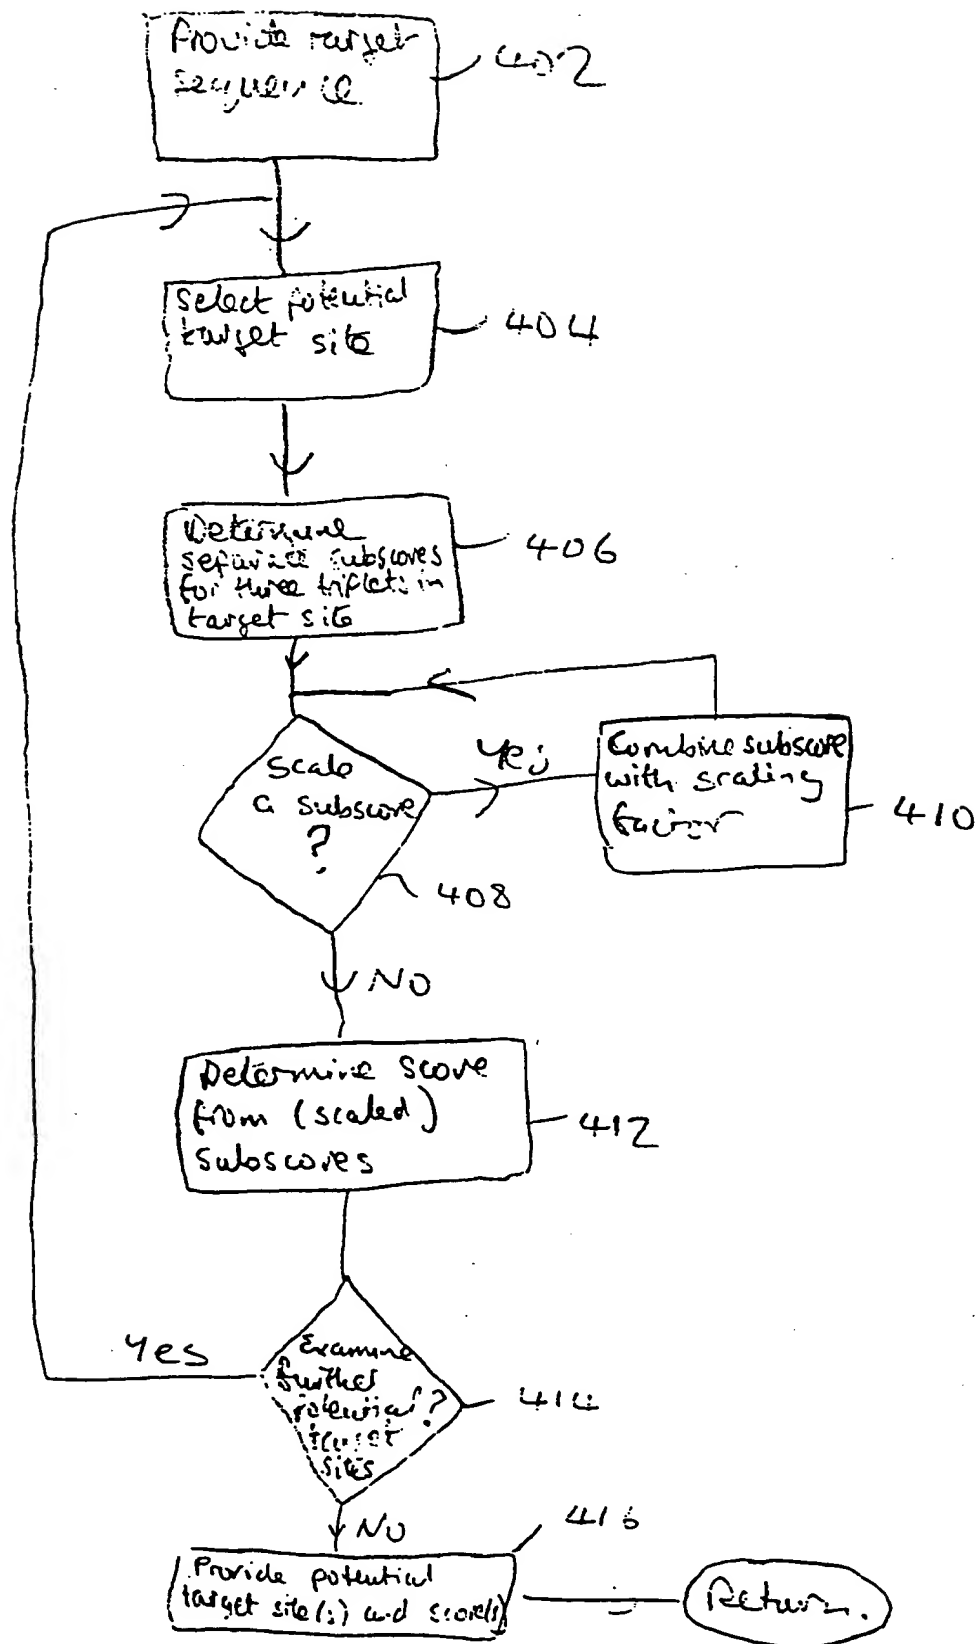 Provide target
sequence
402
Select potential
target site
404
Determine
separate subscores
for three triplets in
target site
406
Scale
a subscore
?
408
Yes
Combine subscore
with scaling
factor
410
NO
Determine score
from (scaled)
subscores
412
Examine
further
potential
target
sites
?
414
Yes
NO
416
Provide potential
target site(s) and score(s)
Return.